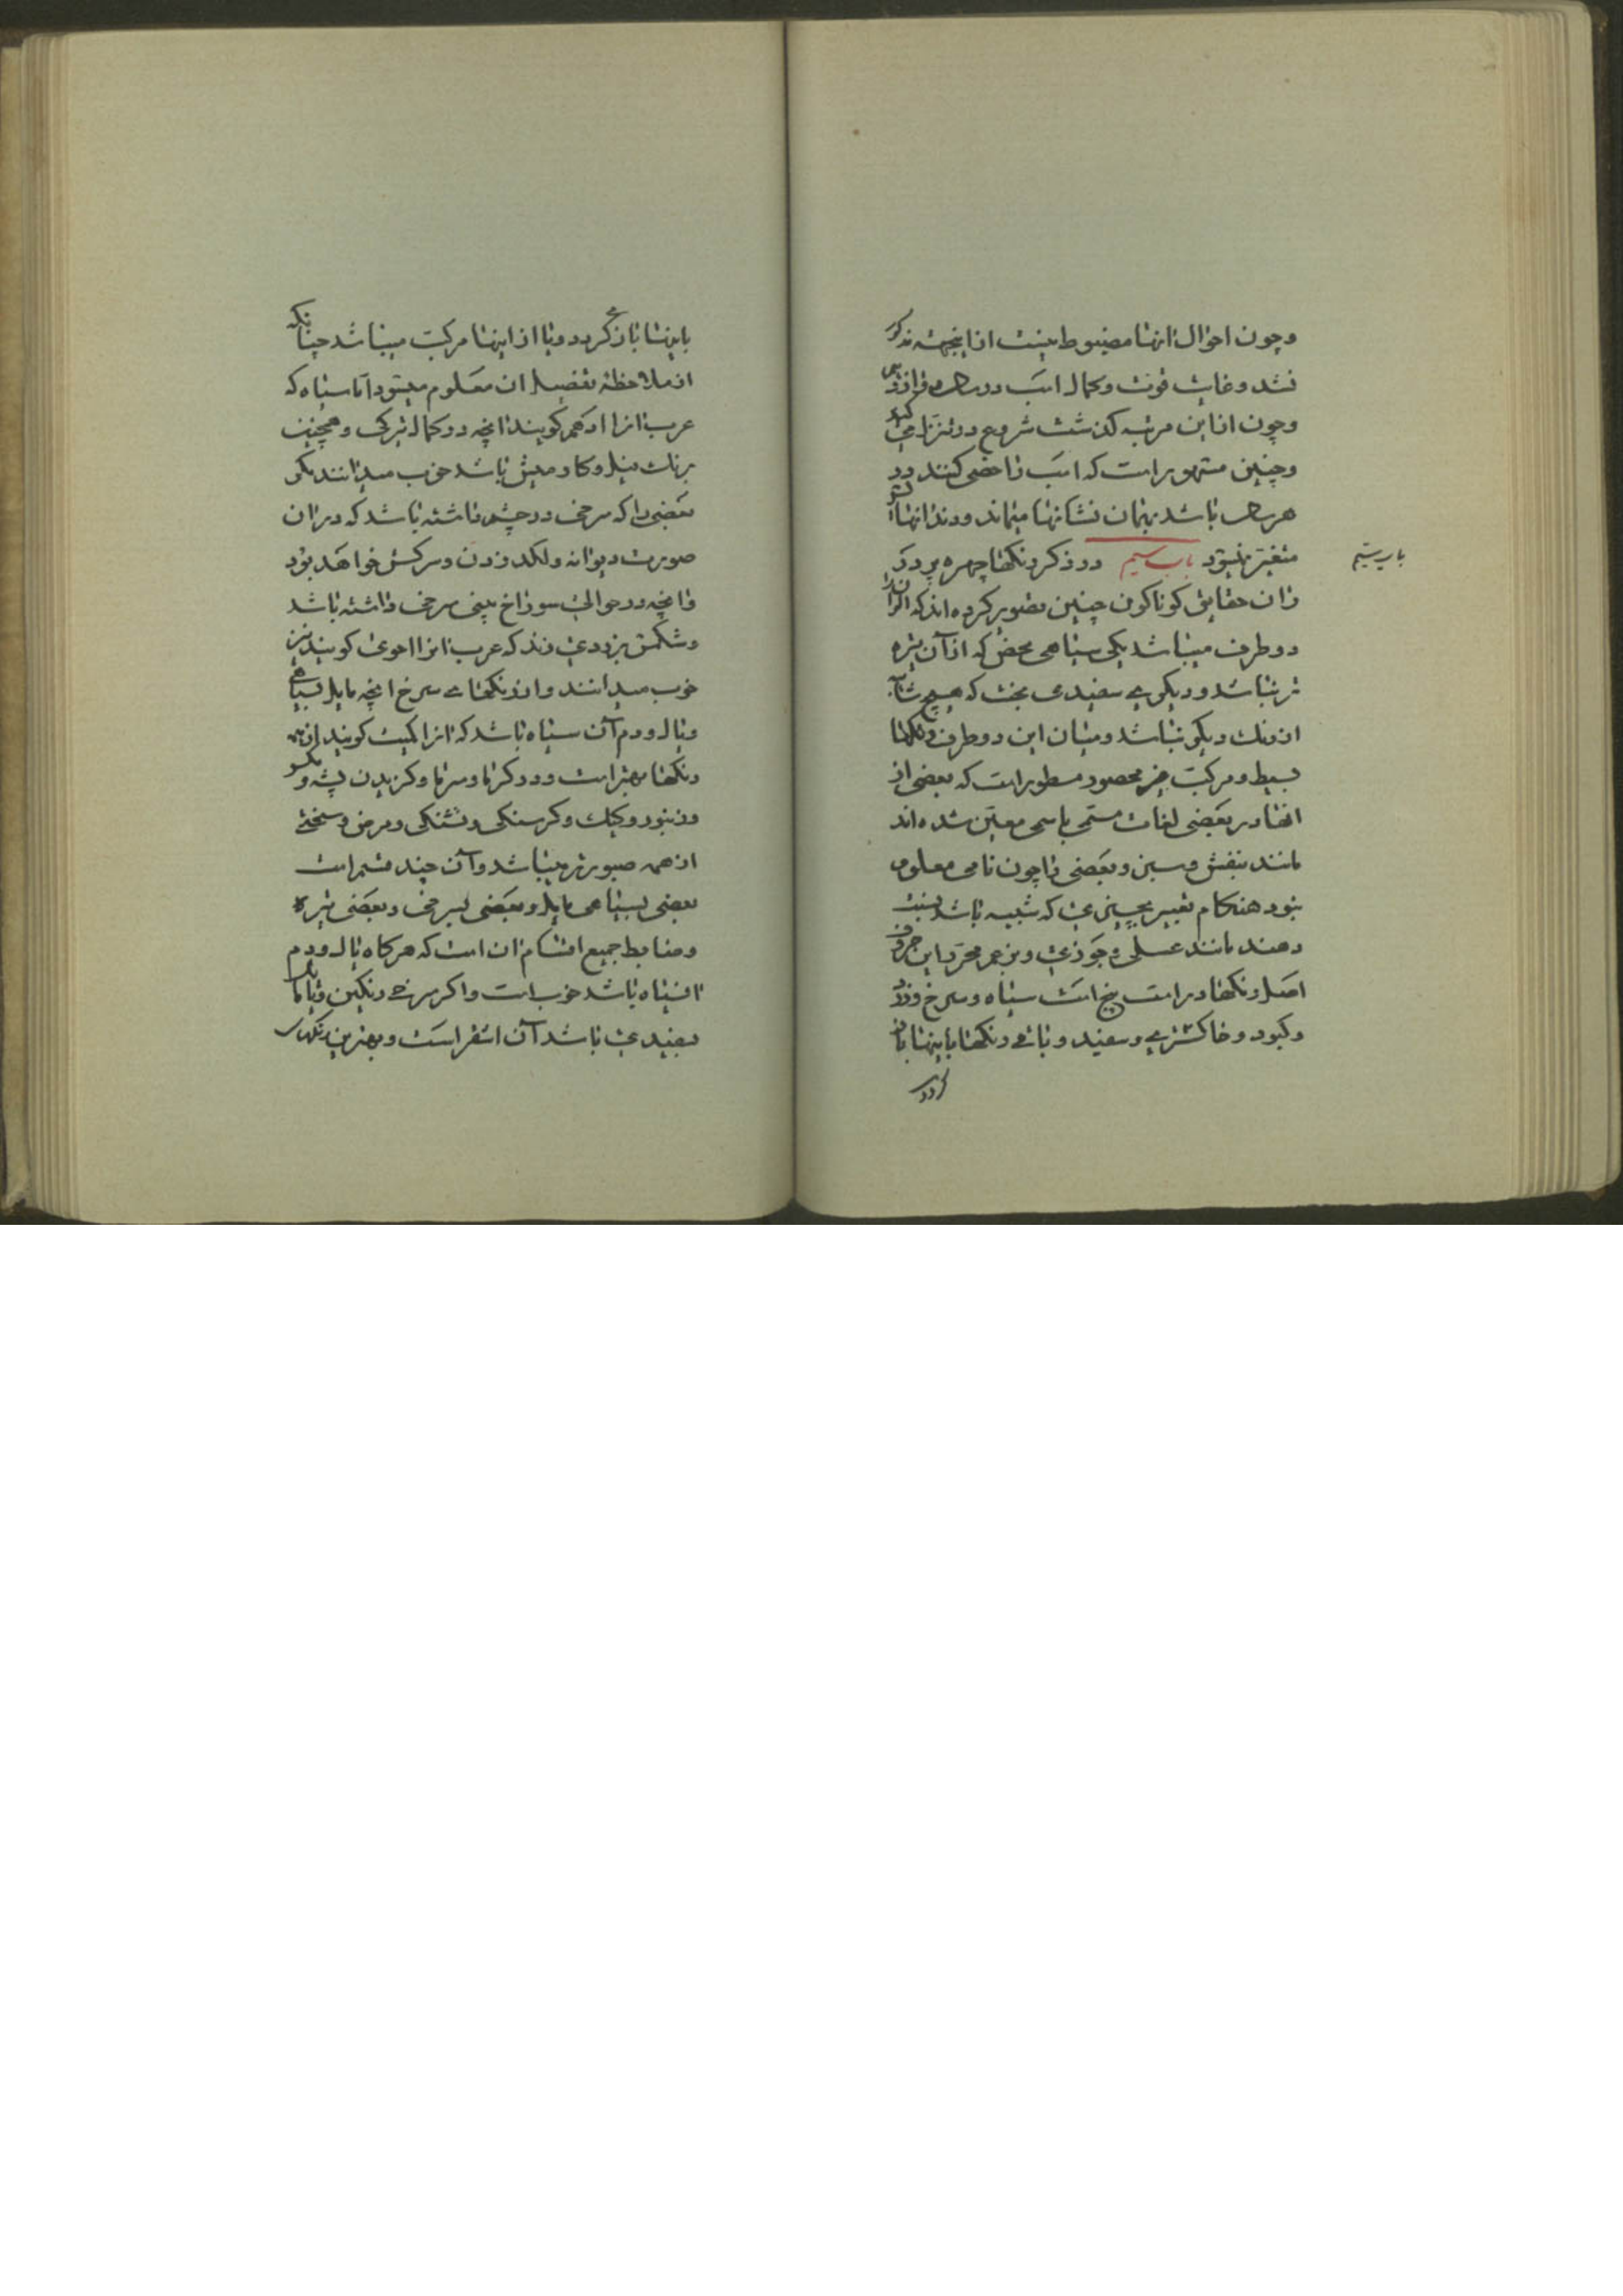 وچون احوال انها مضبوط نیست ازاینجهة مذکور
نشد وغایت قوت وکمال اسب در سال
وچون ازاین مرتبه کذشت شروع در تنزل می کند
وچنین مشهور است که اسب را خصی کنند در
هر سال باشد بهمان نشانها میماند ودندانها
متغیر نمیشود باب سیم در ذکر رنکها چهره پرداز
باب سیم
ران حقایق کوناکون چنین تصویر کرده اند که الوانرا
دو طرف میباشد یکی سیاهی محض که از آن تیره
تر نباشد ودیکری سفیدی بحت که هیچ شائبه
از رنك دیکر نباشد ومیان این دو طرف رنکها
بسیط ومرکب غیر محصور مسطور است که بعضی از
انها در بعضی لغات مسمی باسمی معین شده اند
مانند بنفش وسبز وبعضی را چون نامی معلوم
نبود هنکام تعبیر بچیزی که شبیه باشد نسبت
دهند مانند عسلی وجوزی وبزعم محرر این حروف
اصل رنکها در است پنج است سیاه وسرخ وزرد
وکبود وخاکستری وسفید وباقی رنکها باینها باز
کردد
باینها باز می کردد ویا از اینها مرکب میباشد چنانکه
از ملاحظه تفصیل ان معلوم میشود اما سیاه که
عرب انرا ادهم کویند انچه در کمال تیرکی وهمچنین
برنك فیل وکاومیش باشد خوب میدانند مکر
بعضی را که سرخی در چشم داشته باشد که در ان
صورت دیوانه ولکد زدن وسرکش خواهد بود
وانچه در حوالی سوراخ بینی سرخی داشته باشد
وشکمش بزردی زند که عرب انرا احوی کویند نیز
خوب میدانند واز رنکهای سرخ انچه مایل بسیاهی
ویال ودم آن سیاه باشد که انرا کمیت کویند از همه
رنکها بهتر است ودر کرما وسرما وکزیدن پشه ومکس
وزنبور وکیك وکرسنکی وتشنکی ومرض وسختی
از همه صبورتر میباشد وآن چند قسم است
بعضی بسیاهی مایل وبعضی بسرخی وبعضی تیره
وضابط جمیع اقسام ان است که هرکاه یال ودم
ا سیاه باشد خوب است واکر سرخی رنکین ویا مایل
بسفیدی باشد آن اشقر است وبهترین رنکهای